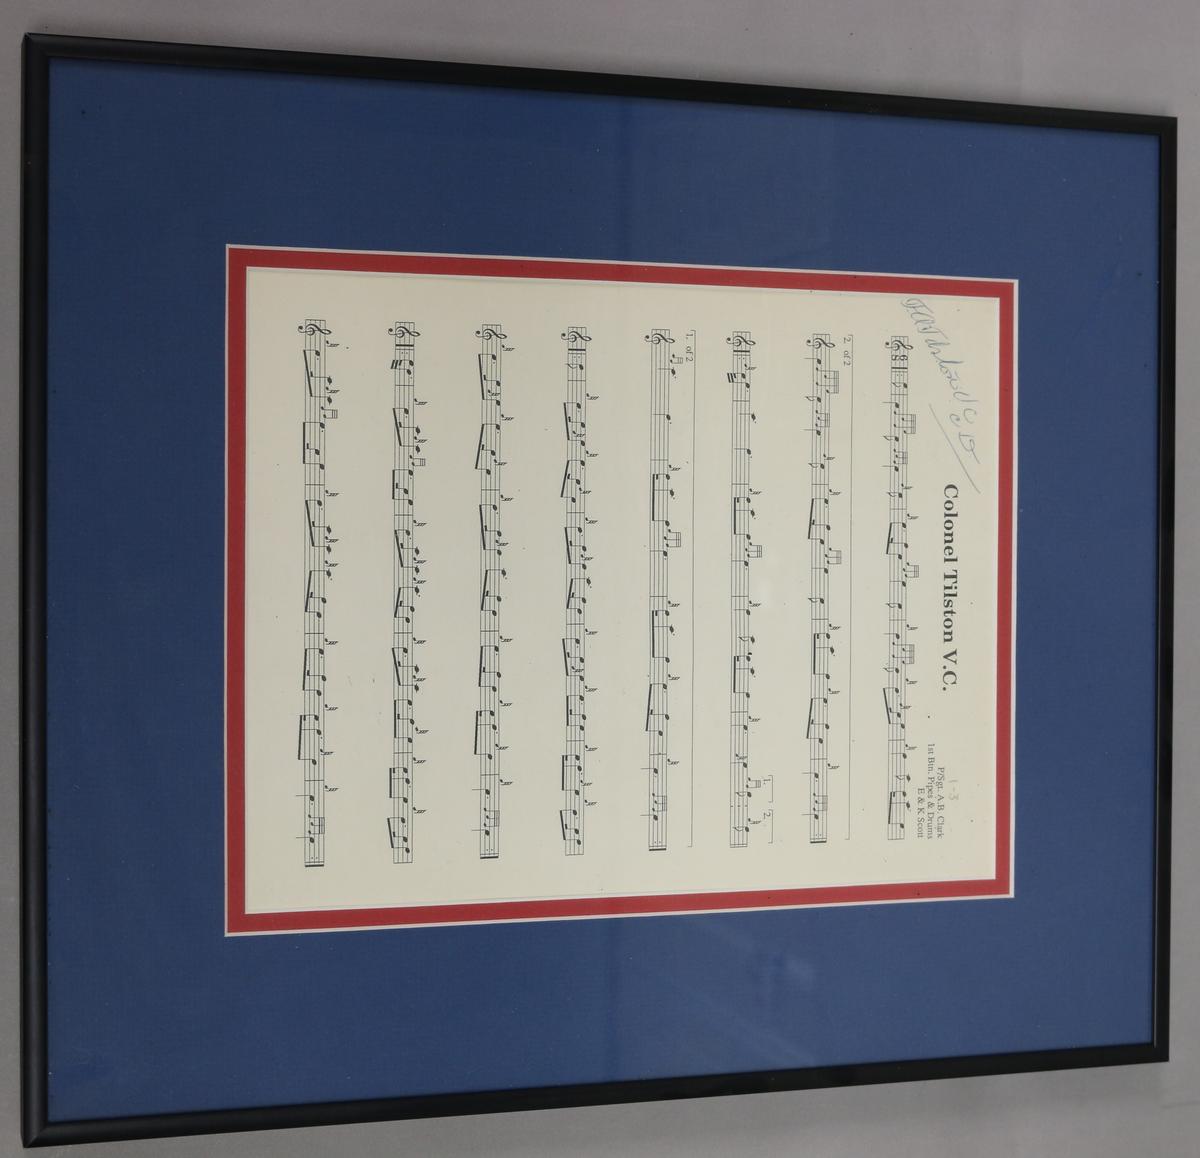 F A Tilston V C
C D
Colonel Tilston V.C.
1-3
P/Sgt. A.B. Clark
1st Btn. Pipes & Drums
E & K Scott
2. of 2
1. 2.
1. of 2